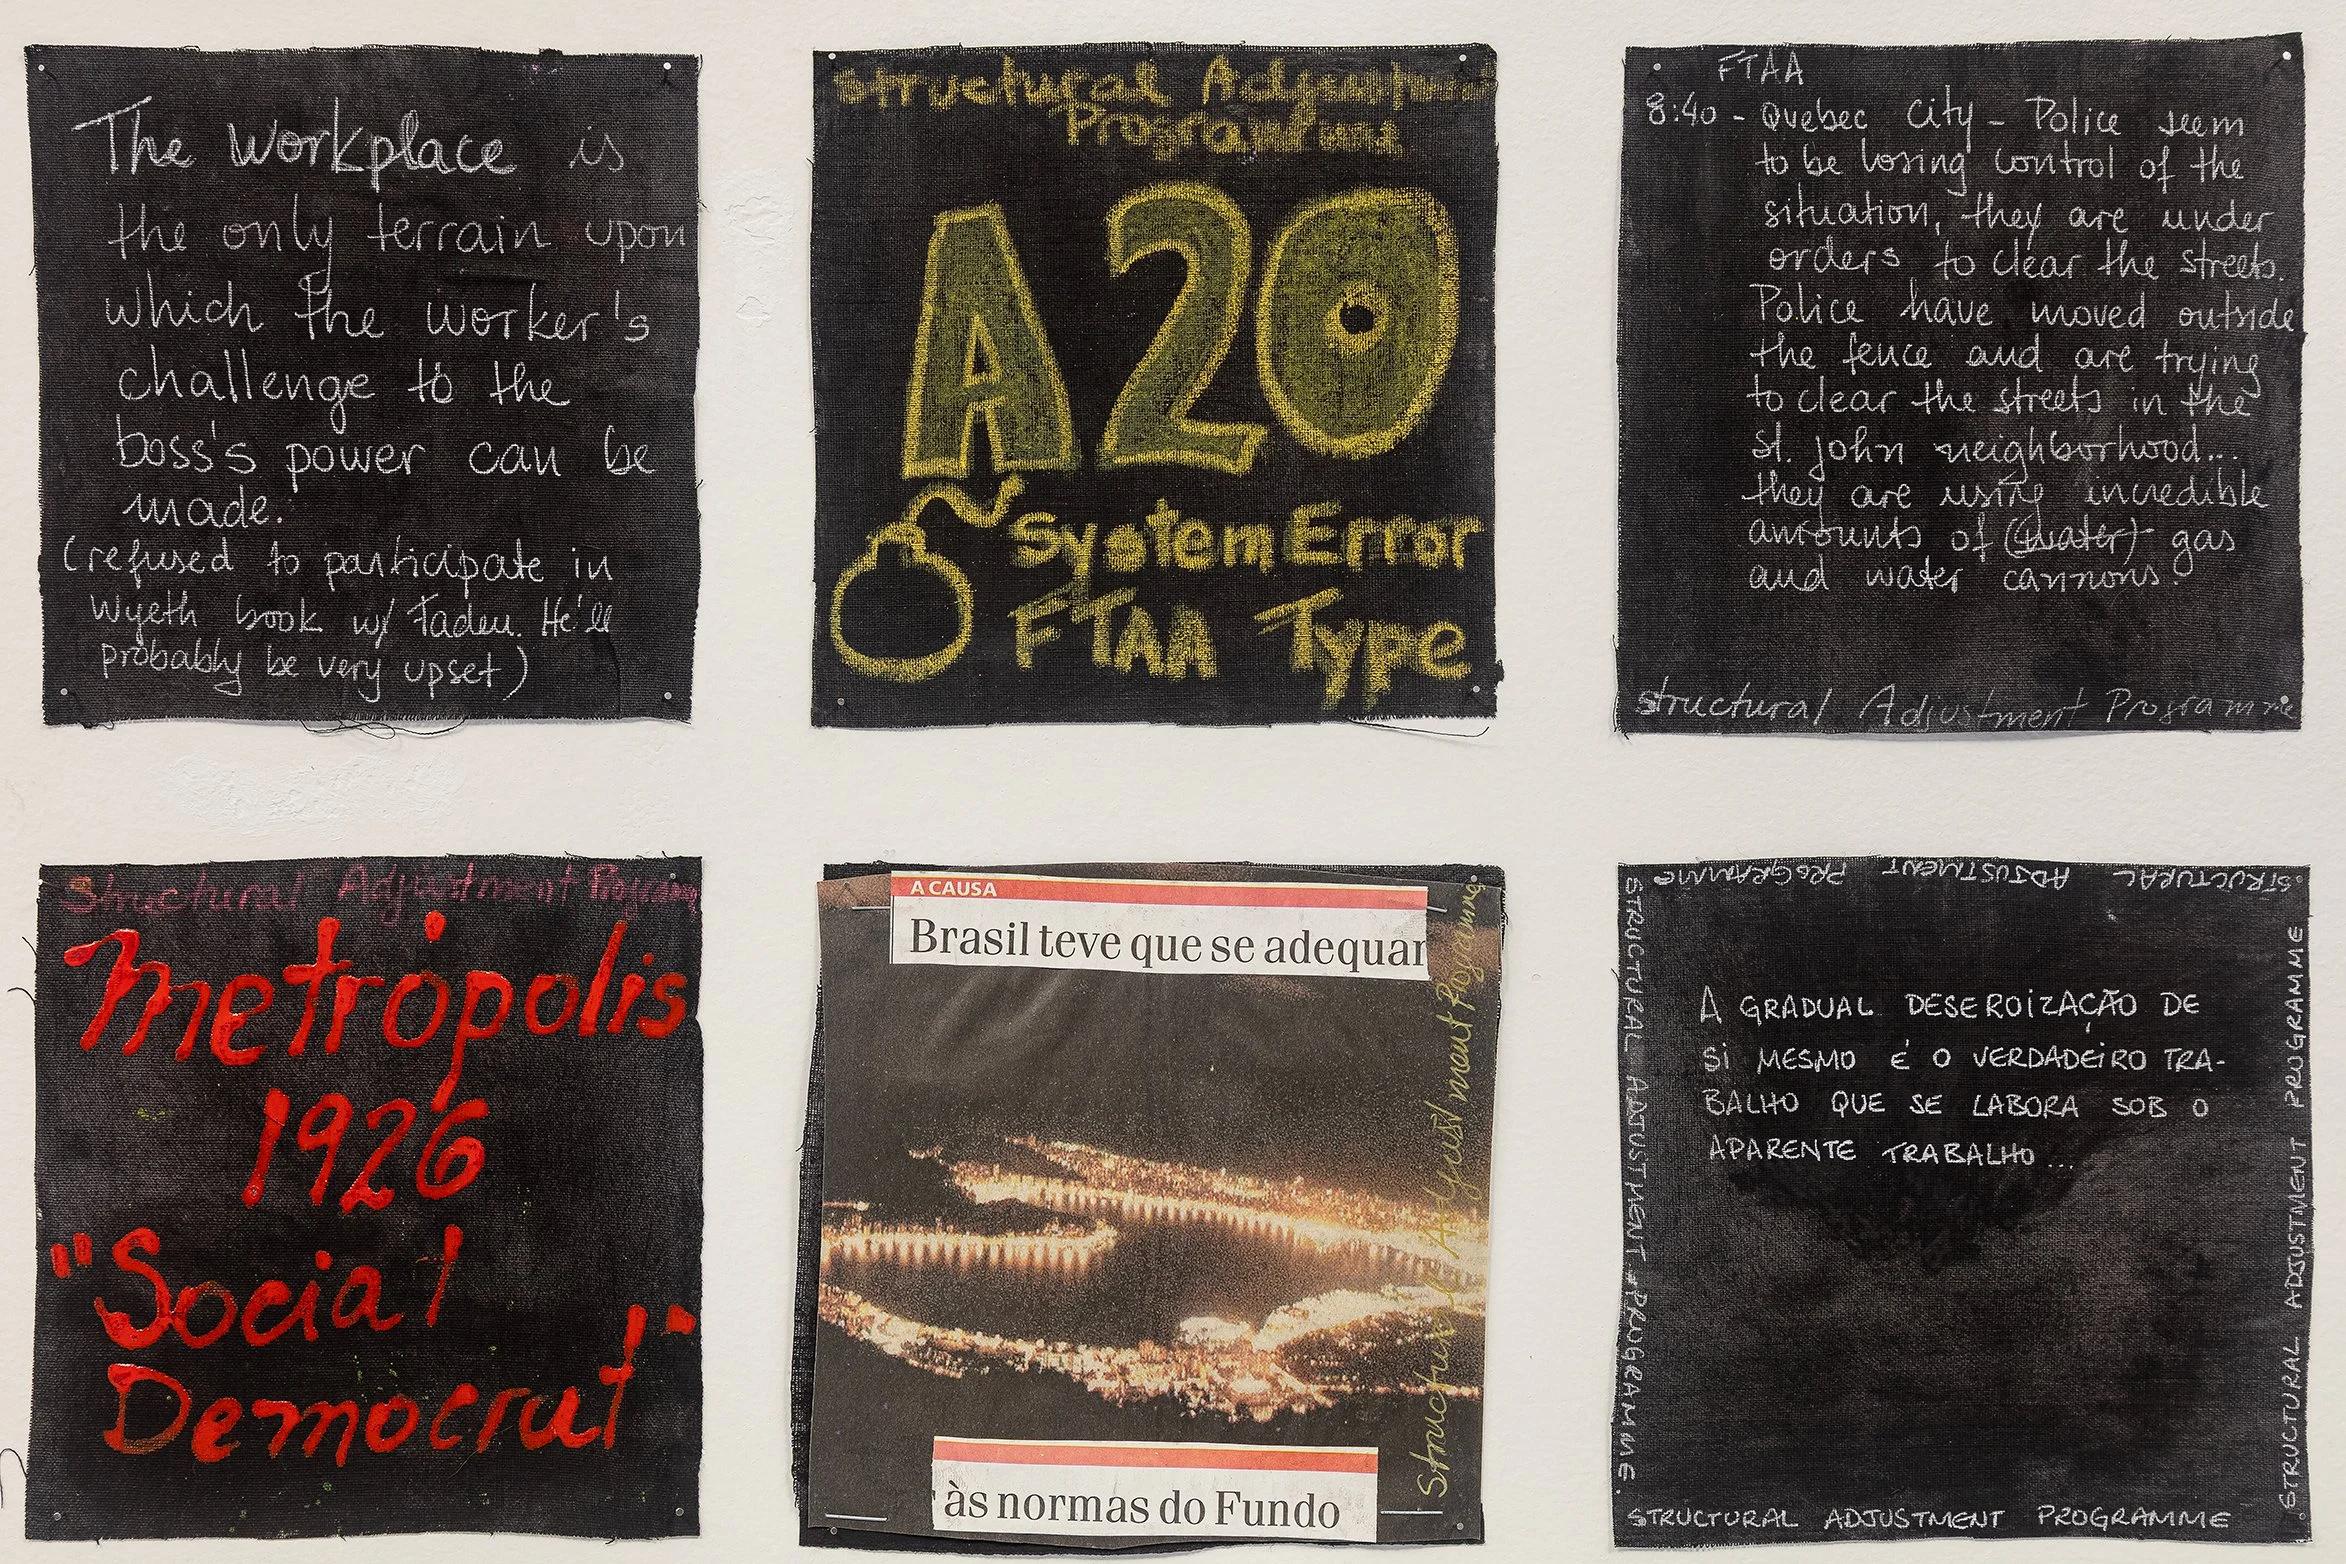 The workplace is
the only terrain upon
which the worker's
challenge to the
boss's power can be
made.
(refused to participate in
Wyeth book w/ Tadeu. He'll
probably be very upset)
Structural Adjustment
Programme
A20
System Error
FTAA Type
FTAA
8:40 - Quebec City - Police seem
to be losing control of the
situation, they are under
orders to clear the streets.
Police have moved outside
the fence and are trying
to clear the streets in the
St. John neighborhood...
they are using incredible
amounts of (water) gas
and water cannons.
Structural Adjustment Programme
Structural Adjustment Programme
Metrópolis
1926
"Social
Democrat"
A CAUSA
Brasil teve que se adequar
às normas do Fundo
Structural Adjustment Programme
STRUCTURAL ADJUSTMENT PROGRAMME
STRUCTURAL ADJUSTMENT PROGRAMME.
A GRADUAL DESEROIZAÇÃO DE
SI MESMO É O VERDADEIRO TRA-
BALHO QUE SE LABORA SOB O
APARENTE TRABALHO...
STRUCTURAL ADJUSTMENT PROGRAMME
STRUCTURAL ADJUSTMENT PROGRAMME